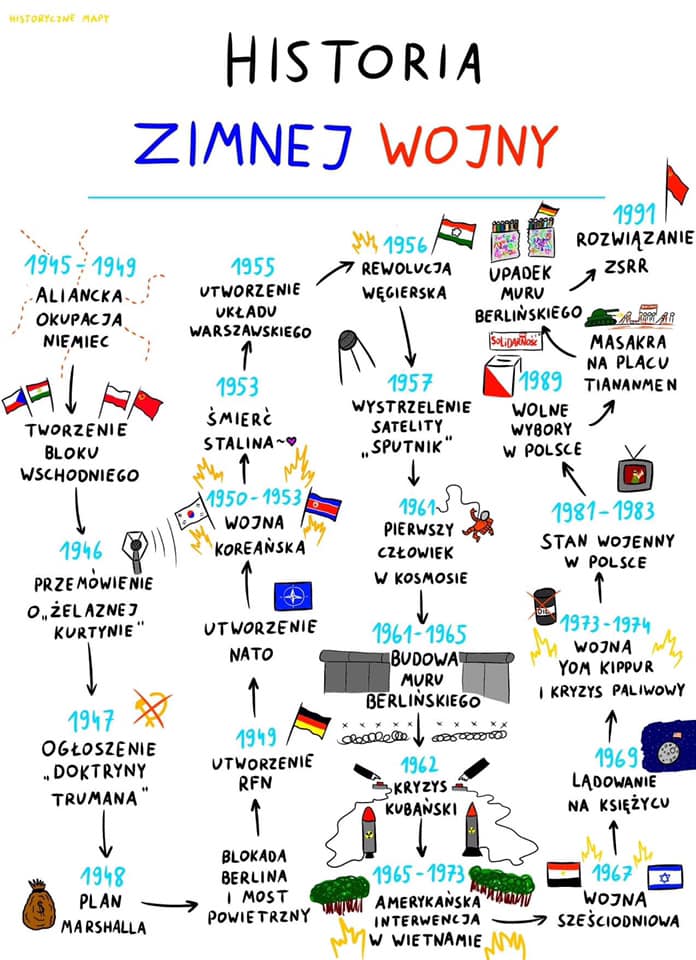 HISTORYCZNE MAPY
HISTORIA
ZIMNEJ WOJNY
1945-1949
ALIANCKA
OKUPACJA
NIEMIEC
TWORZENIE
BLOKU
WSCHODNIEGO
1946
PRZEMÓWIENIE
O „ŻELAZNEJ
KURTYNIE"
1947
OGŁOSZENIE
„DOKTRYNY
TRUMANA"
1948
PLAN
MARSHALLA
BLOKADA
BERLINA
I MOST
POWIETRZNY
1949
UTWORZENIE
RFN
UTWORZENIE
NATO
1950-1953
WOJNA
KOREAŃSKA
1953
ŚMIERĆ
STALINA~
1955
UTWORZENIE
UKŁADU
WARSZAWSKIEGO
1956
REWOLUCJA
WĘGIERSKA
1957
WYSTRZELENIE
SATELITY
„SPUTNIK"
1961
PIERWSZY
CZŁOWIEK
W KOSMOSIE
1961-1965
BUDOWA
MURU
BERLIŃSKIEGO
1962
KRYZYS
KUBAŃSKI
1965-1973
AMERYKAŃSKA
INTERWENCJA
W WIETNAMIE
1967
WOJNA
SZEŚCIODNIOWA
1969
LĄDOWANIE
NA KSIĘŻYCU
OIL
1973-1974
WOJNA
YOM KIPPUR
I KRYZYS PALIWOWY
1981-1983
STAN WOJENNY
W POLSCE
SOLIDARNOŚĆ
1989
WOLNE
WYBORY
W POLSCE
MASAKRA
NA PLACU
TIANANMEN
UPADEK
MURU
BERLIŃSKIEGO
1991
ROZWIĄZANIE
ZSRR